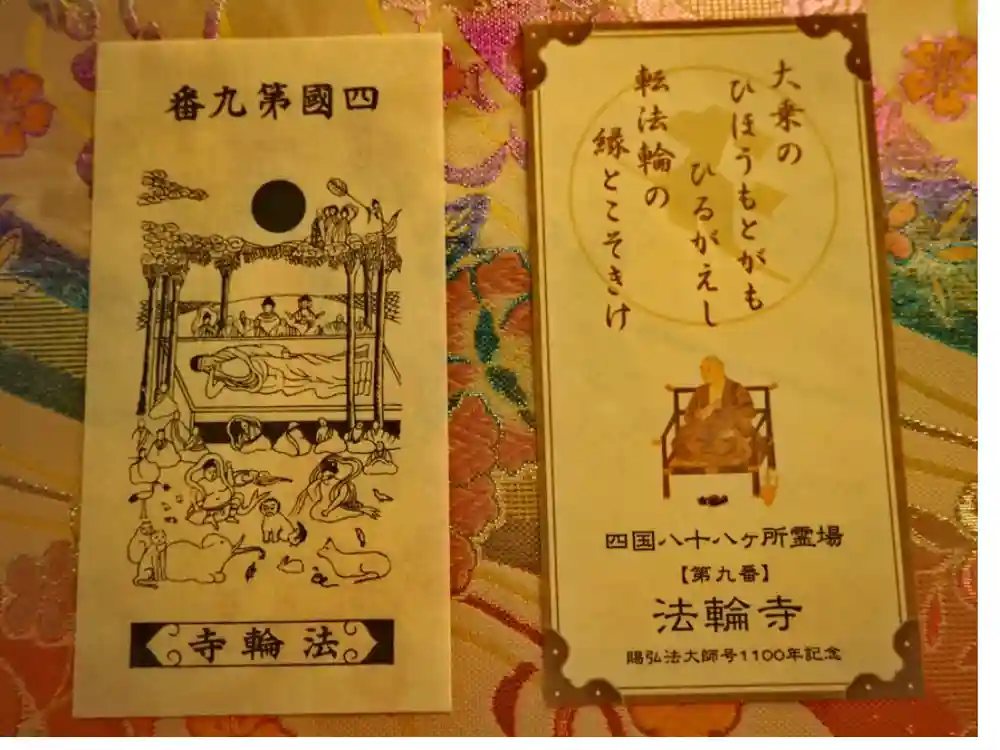 四國第九番
法輪寺
大乗の
ひほうもとがも
ひるがえし
転法輪の
縁とこそきけ
四国八十八ヶ所霊場
【第九番】
法輪寺
賜弘法大師号1100年記念